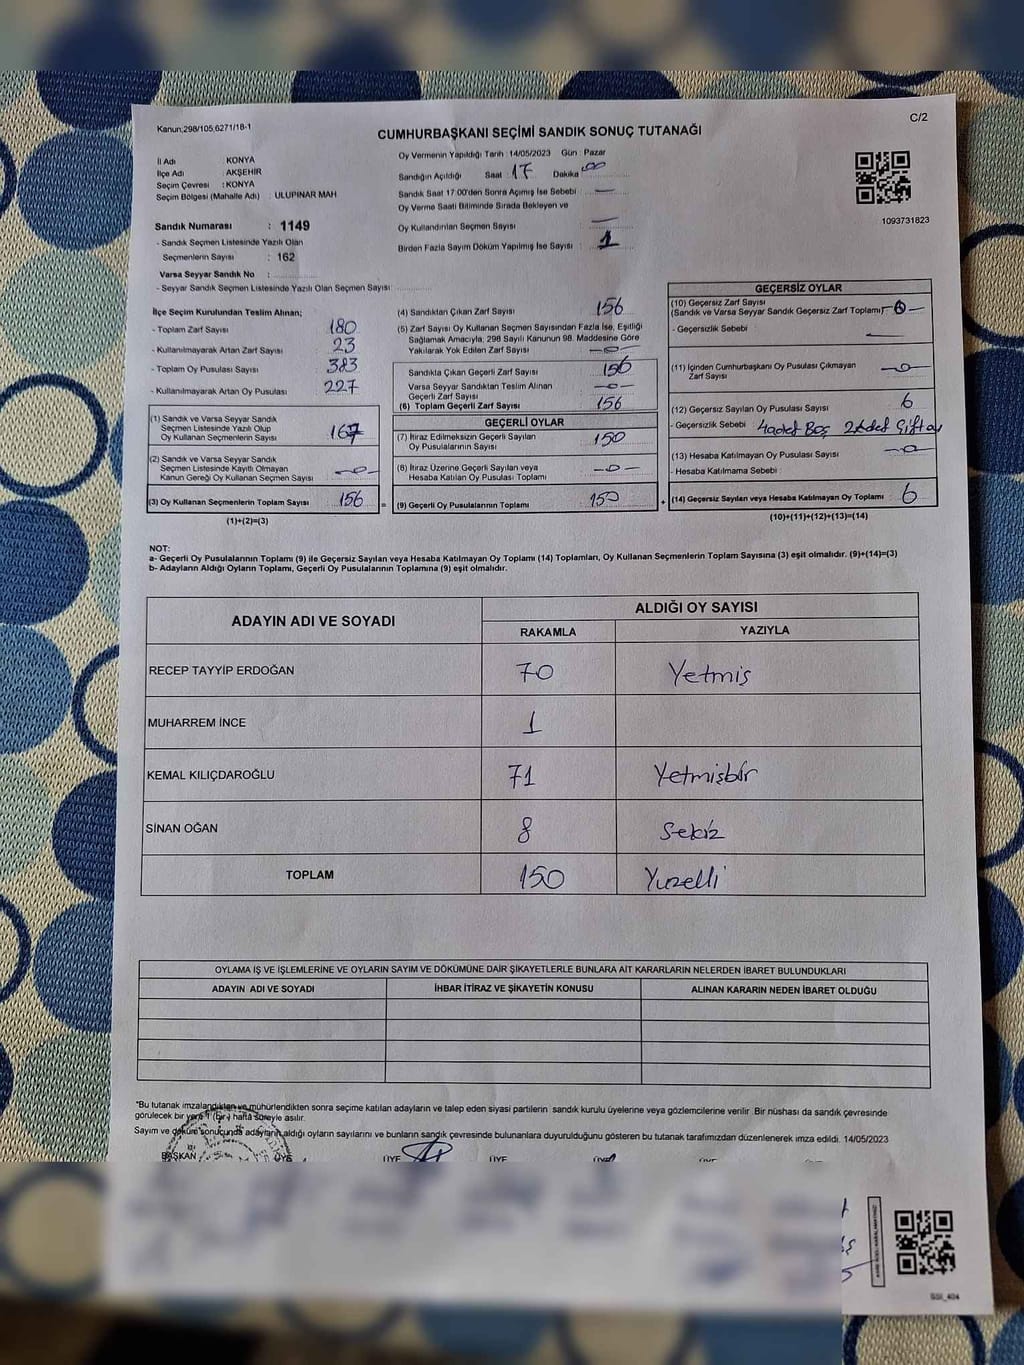 Kanun;298/105,6271/18-1
C/2
CUMHURBAŞKANI SEÇİMİ SANDIK SONUÇ TUTANAĞI
İl Adı : KONYA
İlçe Adı : AKŞEHİR
Seçim Çevresi : KONYA
Seçim Bölgesi (Mahalle Adı) : ULUPINAR MAH
Oy Vermenin Yapıldığı Tarih : 14/05/2023 Gün : Pazar
Sandığın Açıldığı Saat : 17 Dakika : 00
Sandık Saat 17:00'den Sonra Açımış İse Sebebi : —
Oy Verme Saati Bitiminde Sırada Bekleyen ve
Oy Kullandırılan Seçmen Sayısı : —
Birden Fazla Sayım Döküm Yapılmış İse Sayısı : 1
1093731823
Sandık Numarası : 1149
- Sandık Seçmen Listesinde Yazılı Olan
Seçmenlerin Sayısı : 162
Varsa Seyyar Sandık No :
- Seyyar Sandık Seçmen Listesinde Yazılı Olan Seçmen Sayısı:
İlçe Seçim Kurulundan Teslim Alınan;
- Toplam Zarf Sayısı : 180
- Kullanılmayarak Artan Zarf Sayısı : 23
- Toplam Oy Pusulası Sayısı : 383
- Kullanılmayarak Artan Oy Pusulası : 227
(1) Sandık ve Varsa Seyyar Sandık
Seçmen Listesinde Yazılı Olup
Oy Kullanan Seçmenlerin Sayısı
(2) Sandık ve Varsa Seyyar Sandık
Seçmen Listesinde Kayıtlı Olmayan
Kanun Gereği Oy Kullanan Seçmen Sayısı : —0—
(3) Oy Kullanan Seçmenlerin Toplam Sayısı : 156
(1)+(2)=(3)
(4) Sandıktan Çıkan Zarf Sayısı : 156
(5) Zarf Sayısı Oy Kullanan Seçmen Sayısından Fazla İse, Eşitliği
Sağlamak Amacıyla, 298 Sayılı Kanunun 98. Maddesine Göre
Yakılarak Yok Edilen Zarf Sayısı : —0—
Sandıkta Çıkan Geçerli Zarf Sayısı : 156
Varsa Seyyar Sandıktan Teslim Alınan
Geçerli Zarf Sayısı : —0—
(6) Toplam Geçerli Zarf Sayısı : 156
=
GEÇERLİ OYLAR
(7) İtiraz Edilmeksizin Geçerli Sayılan
Oy Pusulalarının Sayısı : 150
(8) İtiraz Üzerine Geçerli Sayılan veya
Hesaba Katılan Oy Pusulası Toplamı : —0—
(9) Geçerli Oy Pusulalarının Toplamı : 150
+
GEÇERSİZ OYLAR
(10) Geçersiz Zarf Sayısı
(Sandık ve Varsa Seyyar Sandık Geçersiz Zarf Toplamı) : —0—
- Geçersizlik Sebebi : —
(11) İçinden Cumhurbaşkanı Oy Pusulası Çıkmayan
Zarf Sayısı : —0—
(12) Geçersiz Sayılan Oy Pusulası Sayısı : 6
- Geçersizlik Sebebi : 4 adet Boş 2 Adet Çift oy
(13) Hesaba Katılmayan Oy Pusulası Sayısı : —0—
- Hesaba Katılmama Sebebi :
(14) Geçersiz Sayılan veya Hesaba Katılmayan Oy Toplamı : 6
(10)+(11)+(12)+(13)=(14)
NOT:
a- Geçerli Oy Pusulalarının Toplamı (9) ile Geçersiz Sayılan veya Hesaba Katılmayan Oy Toplamı (14) Toplamları, Oy Kullanan Seçmenlerin Toplam Sayısına (3) eşit olmalıdır. (9)+(14)=(3)
b- Adayların Aldığı Oyların Toplamı, Geçerli Oy Pusulalarının Toplamına (9) eşit olmalıdır.
ADAYIN ADI VE SOYADI
ALDIĞI OY SAYISI
RAKAMLA YAZIYLA
RECEP TAYYİP ERDOĞAN 70 Yetmiş
MUHARREM İNCE 1
KEMAL KILIÇDAROĞLU 71 Yetmişbir
SİNAN OĞAN 8 Sekiz
TOPLAM 150 Yuzelli
OYLAMA İŞ VE İŞLEMLERİNE VE OYLARIN SAYIM VE DÖKÜMÜNE DAİR ŞİKAYETLERLE BUNLARA AİT KARARLARIN NELERDEN İBARET BULUNDUKLARI
ADAYIN ADI VE SOYADI İHBAR İTİRAZ VE ŞİKAYETİN KONUSU ALINAN KARARIN NEDEN İBARET OLDUĞU
"Bu tutanak imzalandıktan ve mühürlendikten sonra seçime katılan adayların ve talep eden siyasi partilerin sandık kurulu üyelerine veya gözlemcilerine verilir. Bir nüshası da sandık çevresinde
görülecek bir yere 1 (bir) hafta süreyle asılır.
Sayım ve döküm sonucunda adayların aldığı oyların sayılarını ve bunların sandık çevresinde bulunanlara duyurulduğunu gösteren bu tutanak tarafımızdan düzenlenerek imza edildi. 14/05/2023
BAŞKAN ÜYE ÜYE ÜYE ÜYE
SSI_404